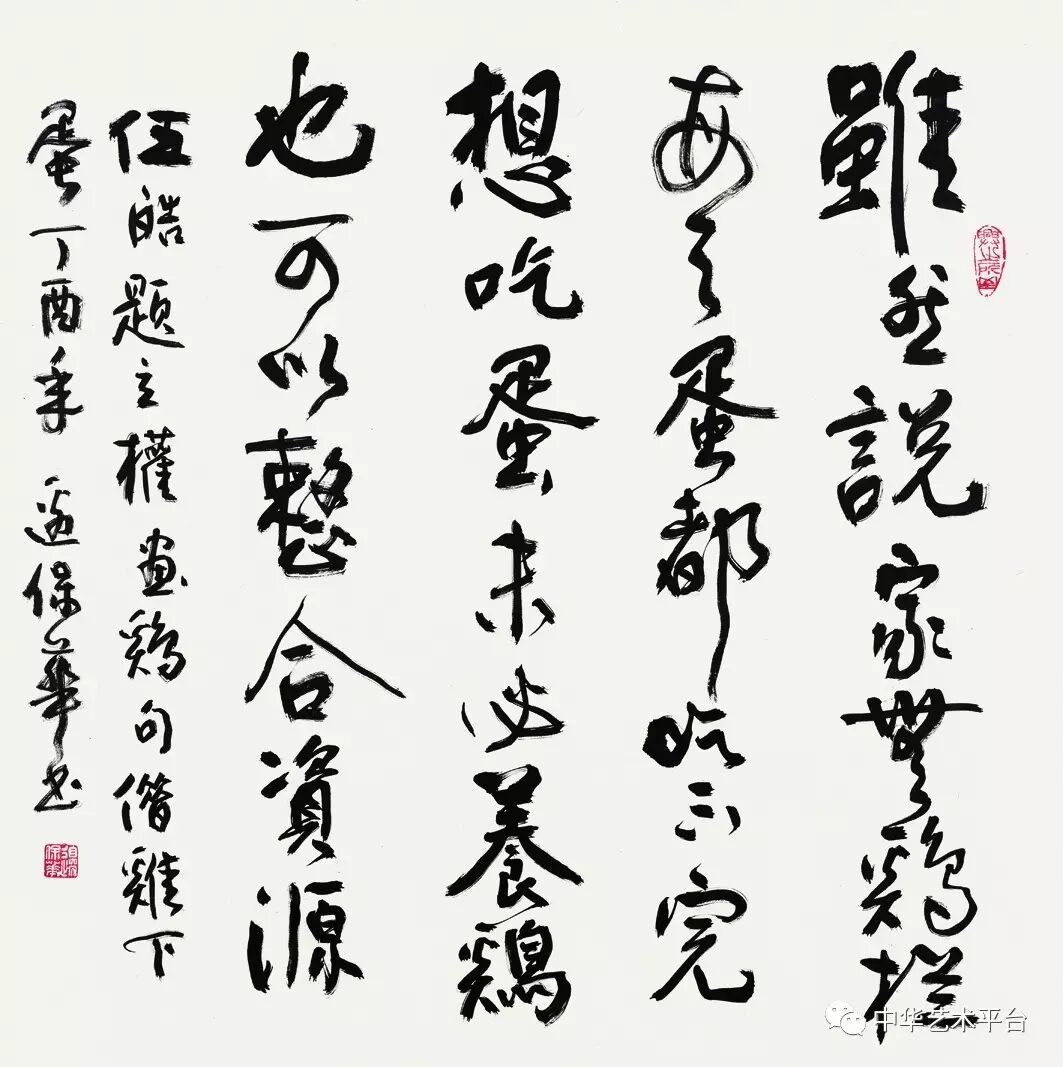 雖然說家無鷄栏
每天蛋都吃不完
想吃蛋未必養鷄
也可以整合資源
伍皓題立權畫鷄句借雞下
蛋丁酉年 保華书
中华艺术平台